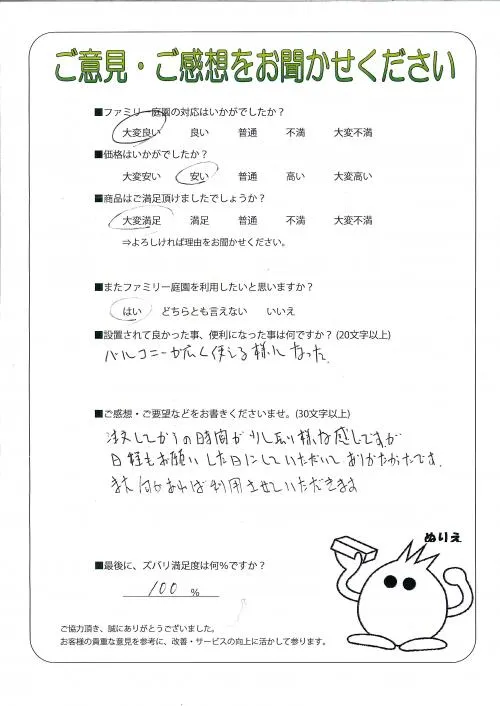 ご意見・ご感想をお聞かせください
■ファミリー庭園の対応はいかがでしたか?
大変良い 良い 普通 不満 大変不満
■価格はいかがでしたか?
大変安い 安い 普通 高い 大変高い
■商品はご満足頂けましたでしょうか?
大変満足 満足 普通 不満 大変不満
⇒よろしければ理由をお聞かせください。
■またファミリー庭園を利用したいと思いますか?
はい どちらとも言えない いいえ
■設置されて良かった事、便利になった事は何ですか? (20文字以上)
バルコニーが広く使える様になった
■ご感想・ご要望などをお書きくださいませ。(30文字以上)
注文してからの時間が少し長い様な感じですが
日程もお願いした日にしていただいてありがたかたです.
また何かあれば利用させていただきます
ぬりえ
■最後に、ズバリ満足度は何%ですか?
100 %
ご協力頂き、誠にありがとうございました。
お客様の貴重な意見を参考に、改善・サービスの向上に活かして参ります。